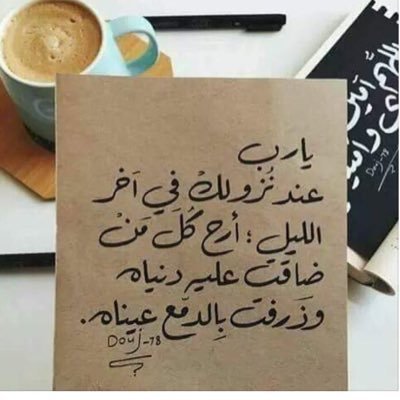 يارب
عند نُزولكْ في آخر
الليل ؛ أرح كُلَ مَنْ
ضاقت عليه دنياه
وذَرفت بِالدمّع عيناه.
Douj-78
اللهُم
Douj-78